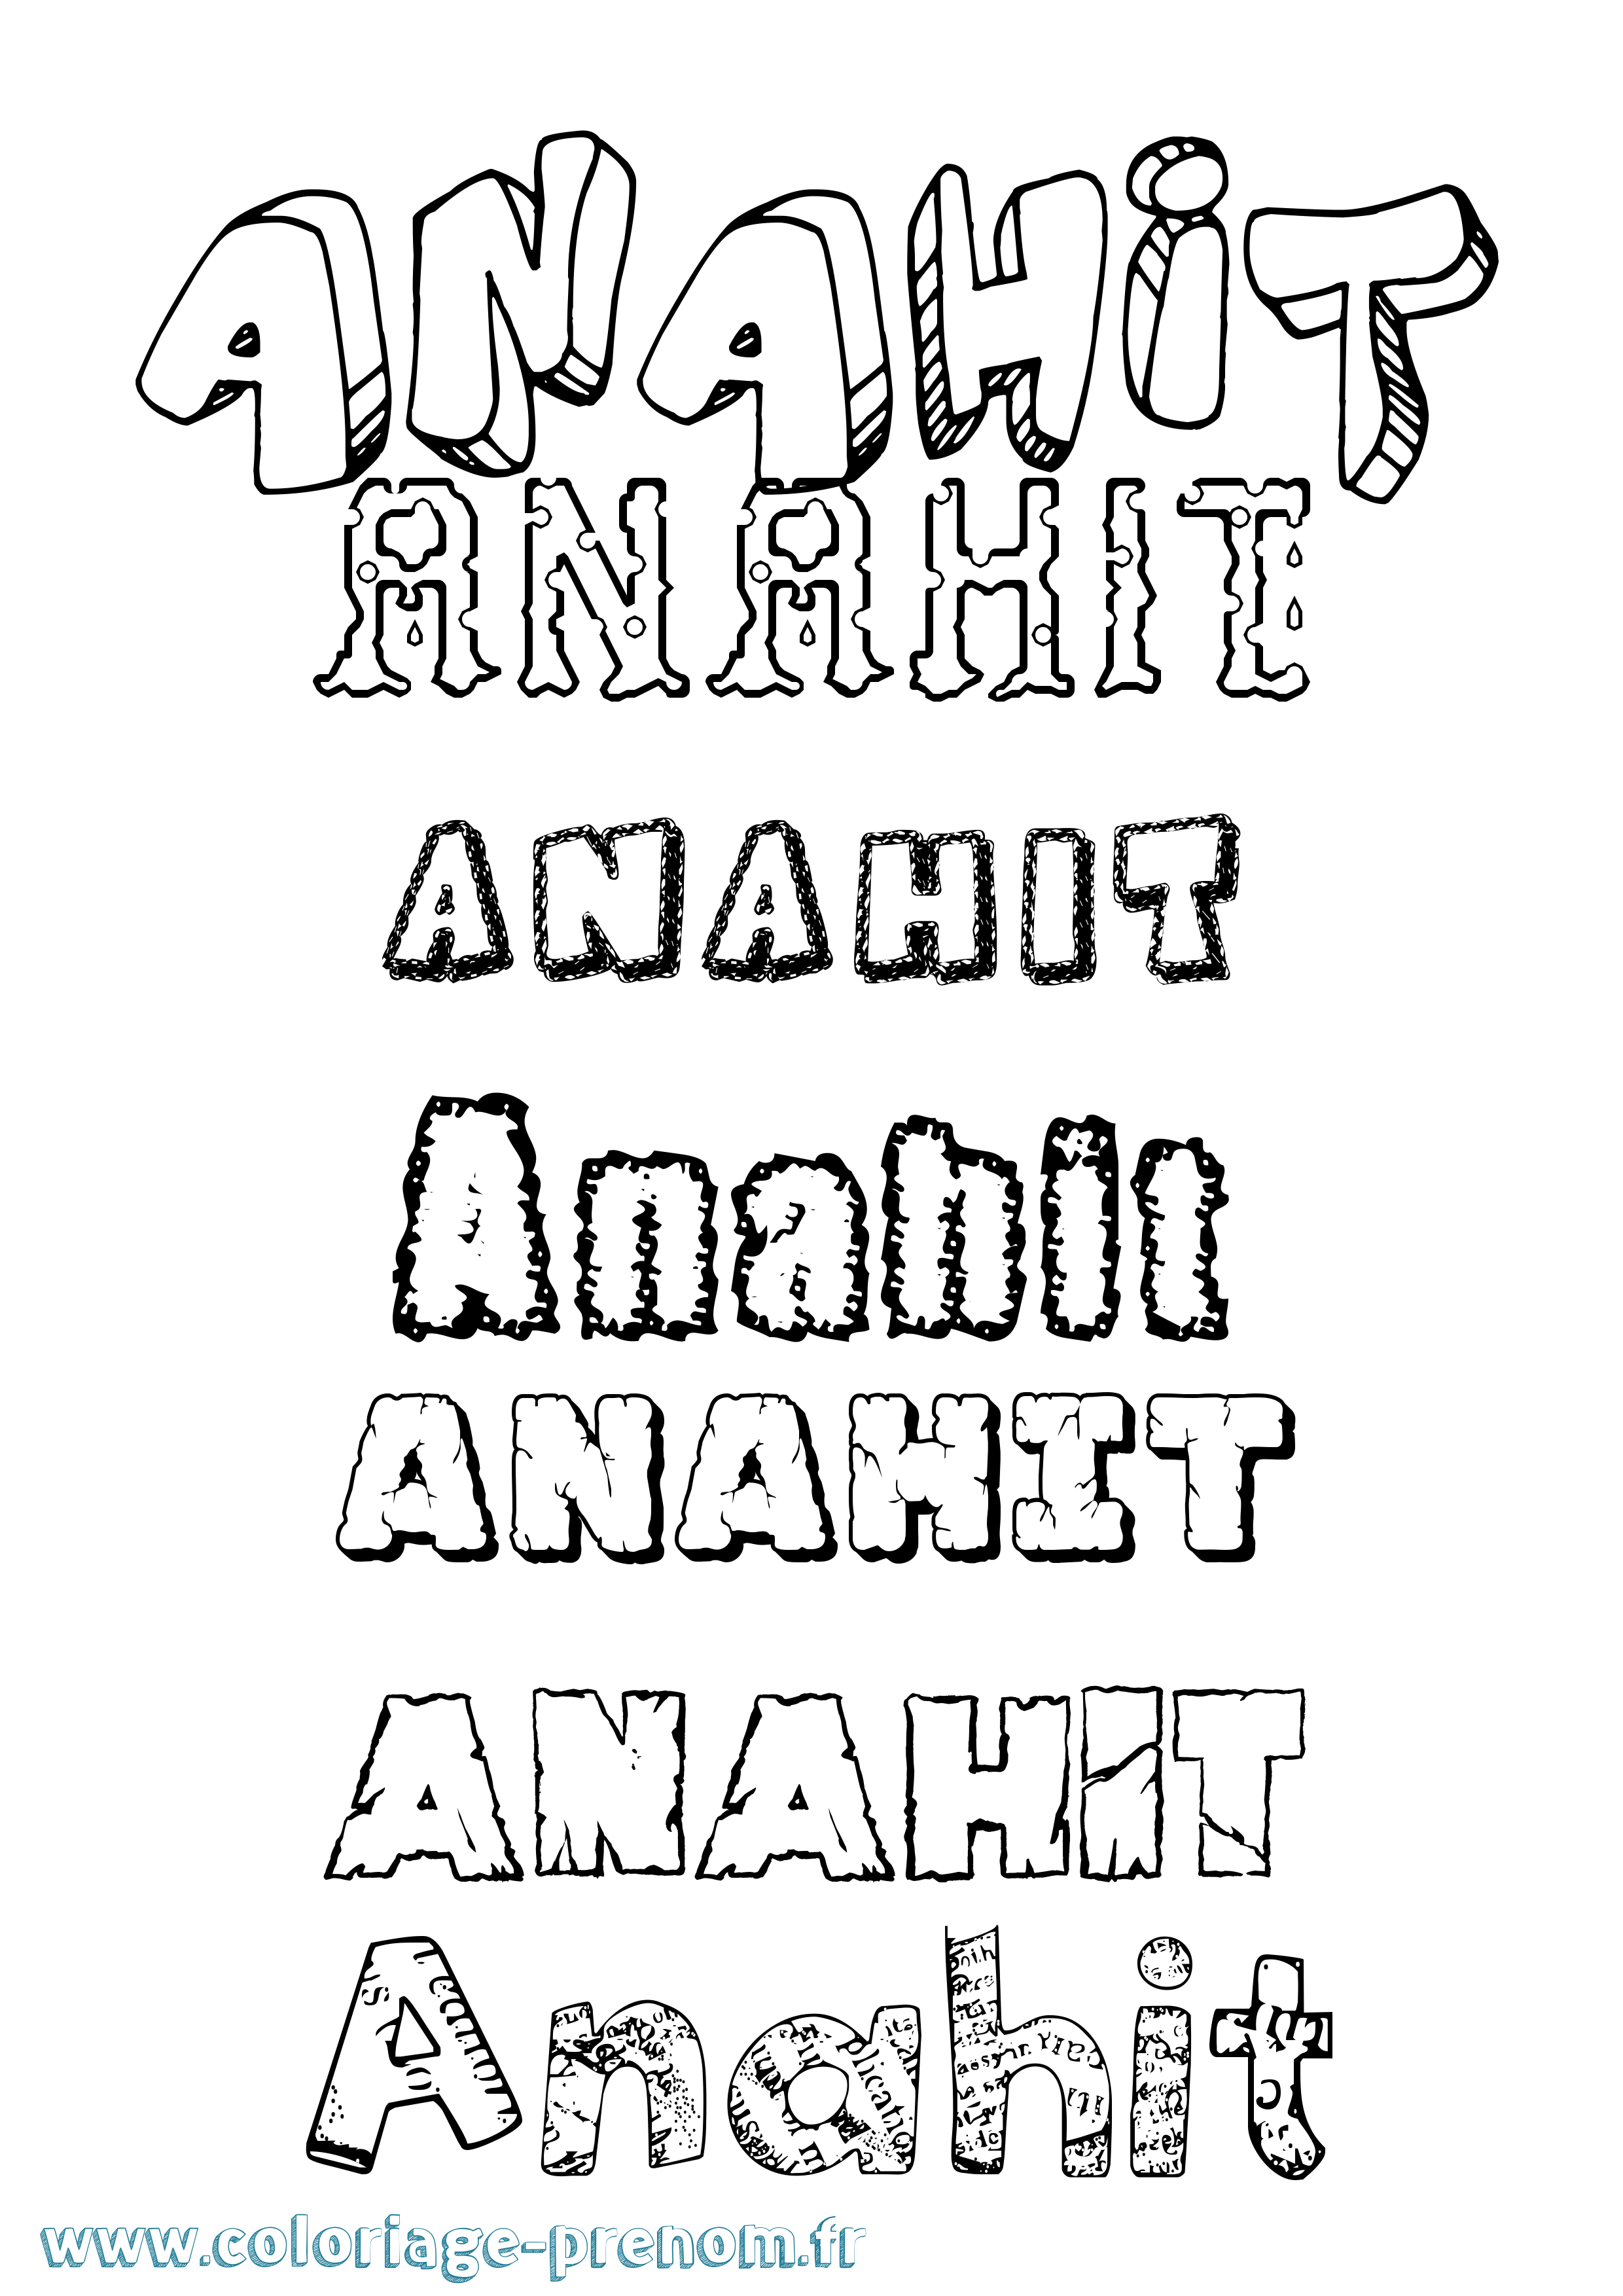 ANAHiT
ANAHIT
ANAHIT
Anahit
ANAHIT
ANAHiT
Anahit
www.coloriage-prenom.fr